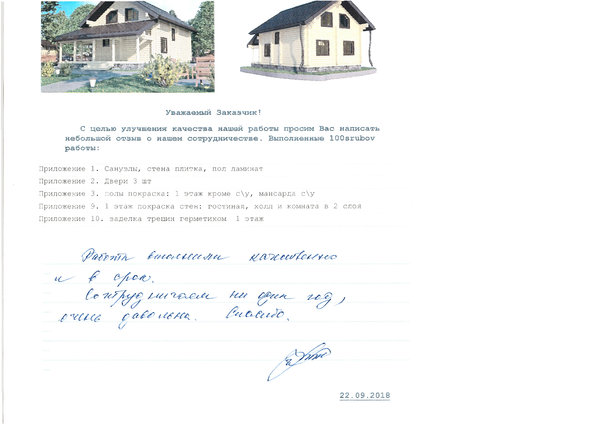 Уважаемый Заказчик!
С целью улучшения качества нашей работы просим Вас написать
небольшой отзыв о нашем сотрудничестве. Выполненные 100srubov
работы:
Приложение 1. Санузлы, стена плитка, пол ламинат
Приложение 2. Двери 3 шт
Приложение 3. полы покраска: 1 этаж кроме с\у, мансарда с\у
Приложение 9. 1 этаж покраска стен: гостиная, холл и комната в 2 слоя
Приложение 10. заделка трещин герметиком 1 этаж
Работы выполнили качественно
и в срок.
Сотрудничаем ни один год,
очень довольна. Спасибо.
22.09.2018